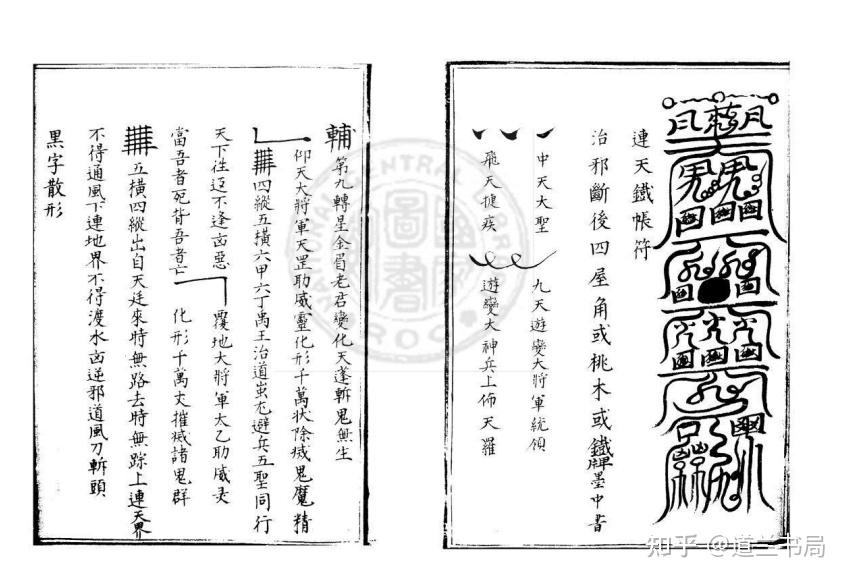 連天鐵帳符
治邪斷後四屋角或桃木或鐵牌墨中書
中天大聖 九天遊變大將軍統領
飛天捷疾 遊變大神兵上佈天羅
輔 第九轉星金眉老君變化天蓬斬鬼無生
仰天大將軍天罡助威靈化形千萬狀除滅鬼魔精
四縱五橫六甲六丁禹王治道蚩尤避兵五聖同行
天下往迈不逢凶惡 覆地大將軍太乙助威灵
當吾者死背吾者亡 化形千萬丈摧滅諸鬼群
五橫四縱出自天廷來時無路去時無踪上連天界
不得通風下連地界不得渡水凶逆邪道風刀斬頭
黑字散形
知乎 @道兰书局